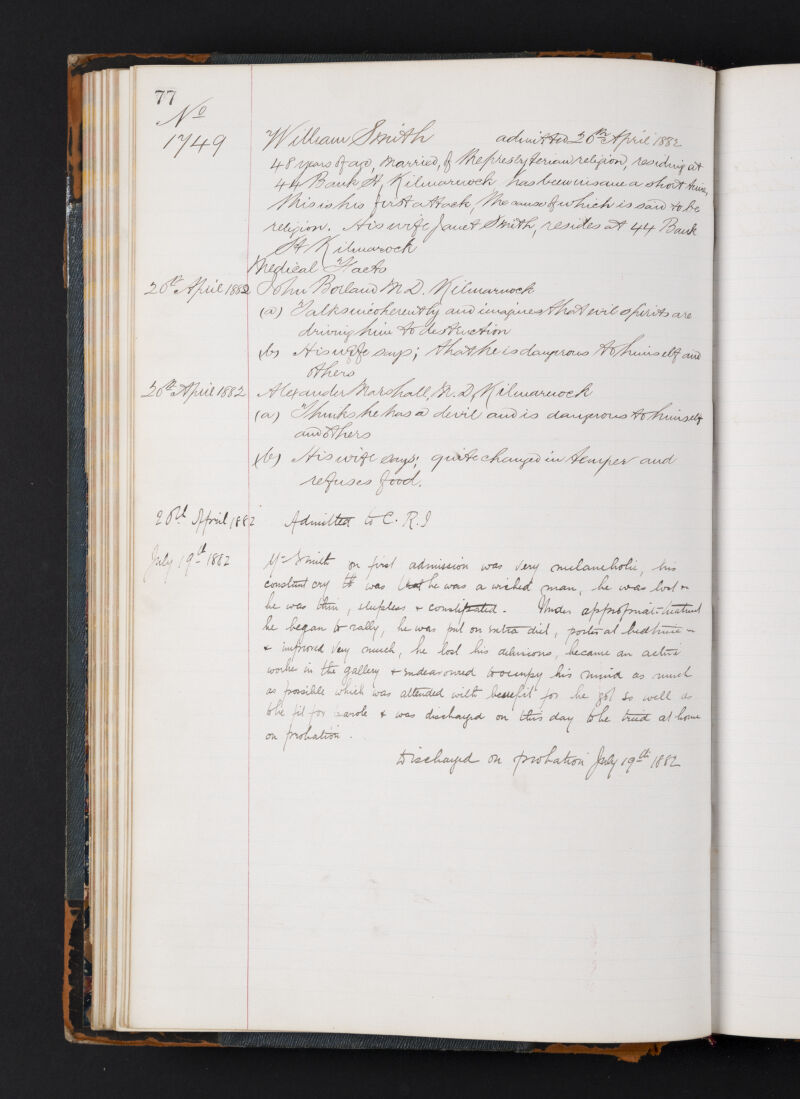 77
No
1749 William Smith admitted 20th April 1882
48 years of age, married, of the presbyterian religion, residing at
44 Bank St, Kilmarnock has been insane a short time,
this is his first attack, the cause of which is said to be
religion. His wife Janet Smith, resides at 44 Bank
St Kilmarock
Medical Facts
20th April 1882 John Borland M.D. Kilmarnock
(a) Talks incoherently and imagines that evil spirits are
driving him to destruction
(b) His wife says; that he is dangerous to himself and
others
20th April 1882 Alexander Marshall, M.D, Kilmarnock
(a) Thinks he has a devil and is dangerous to himself
and others
(b) His wife says; quite changed in temper and
refuses food.
20th April 1882 Admitted to C. R. I
July 19th 1882 Mr Smith on first admission was very melancholic, his
constant cry was that he was a wicked man, he was lost &
he was thin, sleepless & constipated. Under appropriate treatment
he began to rally, he was put on extra diet, porter at bedtime
& improved very much, he lost his delusions, became an active
worker in the gallery & endeavoured to occupy his mind as much
as possible which was attended with benefit for he got so well as
to be fit for parole & was discharged on this day to be tried at home
on probation.
Discharged on probation July 19th 1882